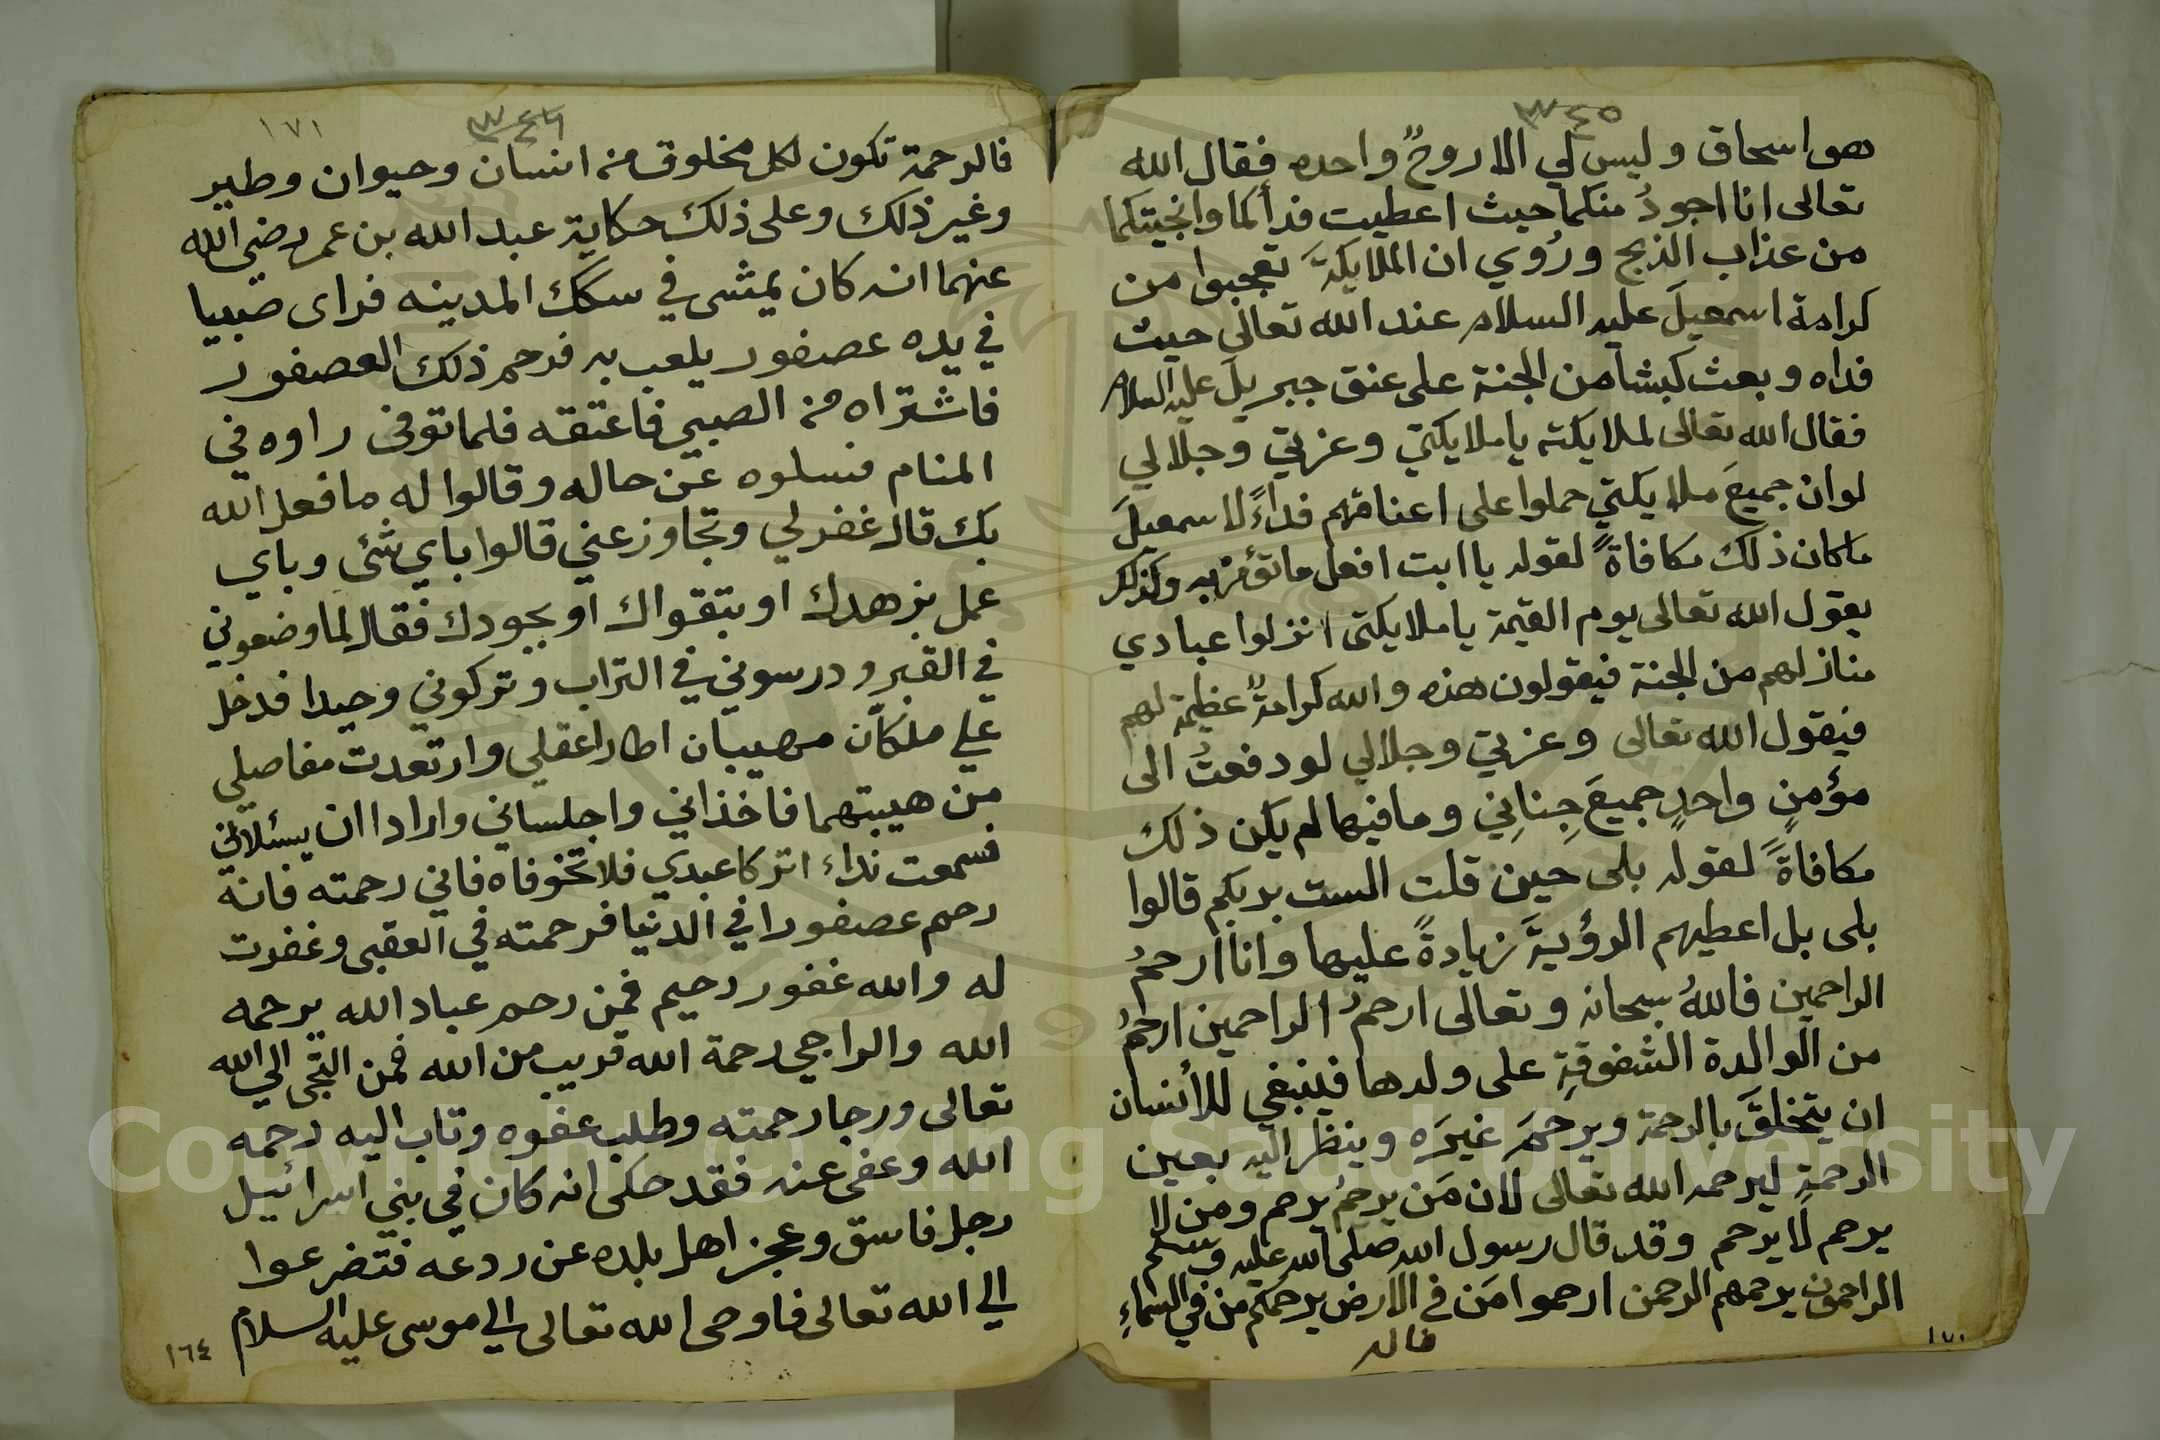 ٣٤٥
هو اسحاق وليس لي الا روحٌ واحده فقال الله
تعالى انا اجودُ منكما حيث اعطيت فدأكما وانجيتكما
من عذاب الذبح ورُوي ان الملايكةَ تعجبوا من
كرامة اسمعيلَ عليه السلام عند الله تعالى حيث
فداه وبعث كبشا من الجنة على عنق جبريلَ عليه السلام
فقال الله تعالى لملايكته يا ملايكتي وعزتي وجلالي
لو ان جميعَ ملايكتي حملوا على اعناقهم فداءً لاسمعيلَ
ما كان ذلك مكافاةً لقوله يا ابت افعل ما تؤمر به وكذلك
يقول الله تعالى يوم القيمة يا ملايكتى انزلوا عبادي
منازلهم من الجنة فيقولون هذه والله كرامةٌ عظيمة لهم
فيقول الله تعالى وعزتي وجلالي لو دفعتُ الى
مؤمنٍ واحدٍ جميعَ جِنانِي وما فيها لم يكن ذلك
مكافاةً لقوله بلى حين قلت الست بربكم قالوا
بلى بل اعطيهم الرؤيةَ زيادةً عليها وانا ارحمُ
الراحمين فاللهُ سبحانه وتعالى ارحمُ الراحمين ارحمُ
من الوالدة الشفوقةِ على ولدها فينبغي للأنسان
ان يتخلقَ بالرحمة ويرحمَ غيرَه وينظر اليه بعين
الرحمةِ ليرحمه الله تعالى لان مَن يرحمُ يرحم ومن لا
يرحم لا يرحم وقد قال رسول الله صلى الله عليه وسلم
الراحمون يرحمهم الرحمن ارحموا مَن في الارض يرحمكم من في السماءِ
فالر
١٧٠
١٧١
٣٤٦
فالرحمة تكون لكل مخلوق من انسان وحيوان وطير
وغير ذلك وعلى ذلك حكاية عبد الله بن عمر رضي الله
عنهما انه كان يمشى في سكك المدينه فراى صبيا
في يده عصفور يلعب به فرحم ذلك العصفور
فاشتراه من الصبي فاعتقه فلما توفى راوه في
المنام فسلوه عن حاله وقالوا له ما فعل الله
بك قال غفر لي وتجاوز عني قالوا باي شئى وباي
عمل بزهدك او بتقواك او بجودك فقال لما وضعوني
في القبر ودرسوني في التراب وتركوني وحيدا فدخل
علي ملكان مهيبان اطارا عقلي وارتعدت مفاصلي
من هيبتهما فاخذاني واجلساني وارادا ان يسئلاني
فسمعت نداء اتركا عبدي فلا تخوفاه فاني رحمته فانه
رحم عصفورا في الدنيا فرحمته في العقبى وغفرت
له والله غفور رحيم فمن رحم عباد الله يرحمه
الله والراجي رحمة الله قريب من الله فمن التجى الي الله
تعالى ورجا رحمته وطلب عفوه وتاب اليه رحمه
الله وعفى عنه فقد حكى انه كان في بني اسرائيل
رجل فاسق وعجز اهل بلده عن ردعه فتضرعوا
الي الله تعالى فاوحى الله تعالى الي موسى عليه السلام
١٦٤
Copyright © King Saud University